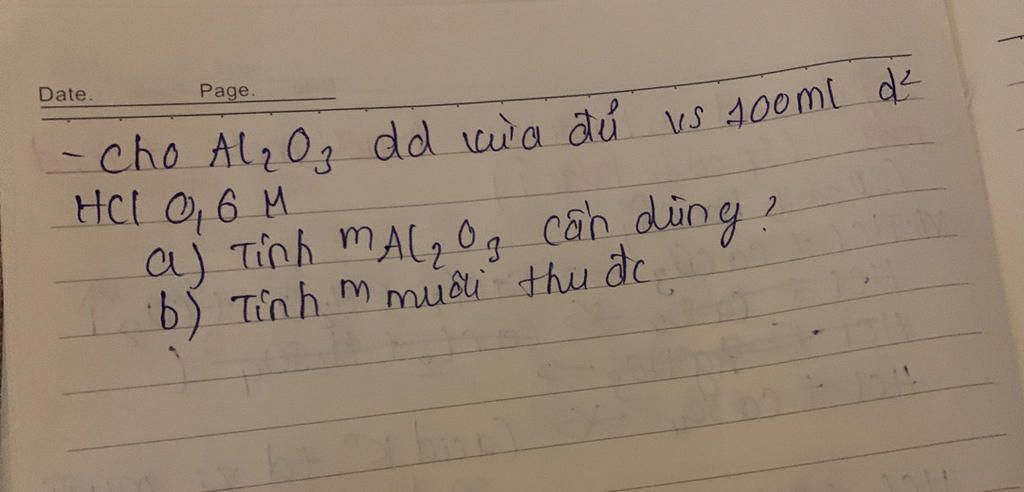 Date. Page.
- Cho Al₂O₃ dd vừa đủ vs 100ml d²
HCl 0,6 M
a) Tính m Al₂O₃ cần dùng?
b) Tính m muối thu đc